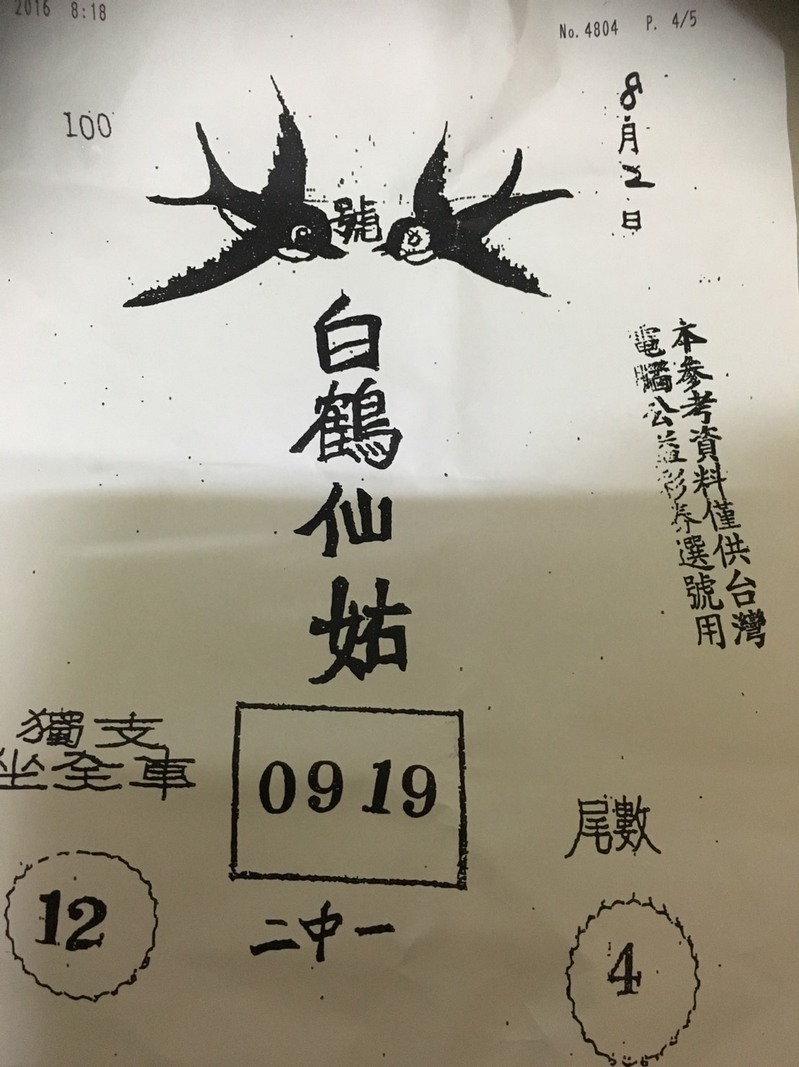 2016 8:18
No. 4804 P. 4/5
100
號
8月2日
白鶴仙姑
本參考資料僅供台灣
電腦公益彩券選號用
獨支
坐全車
12
0919
二中一
尾數
4